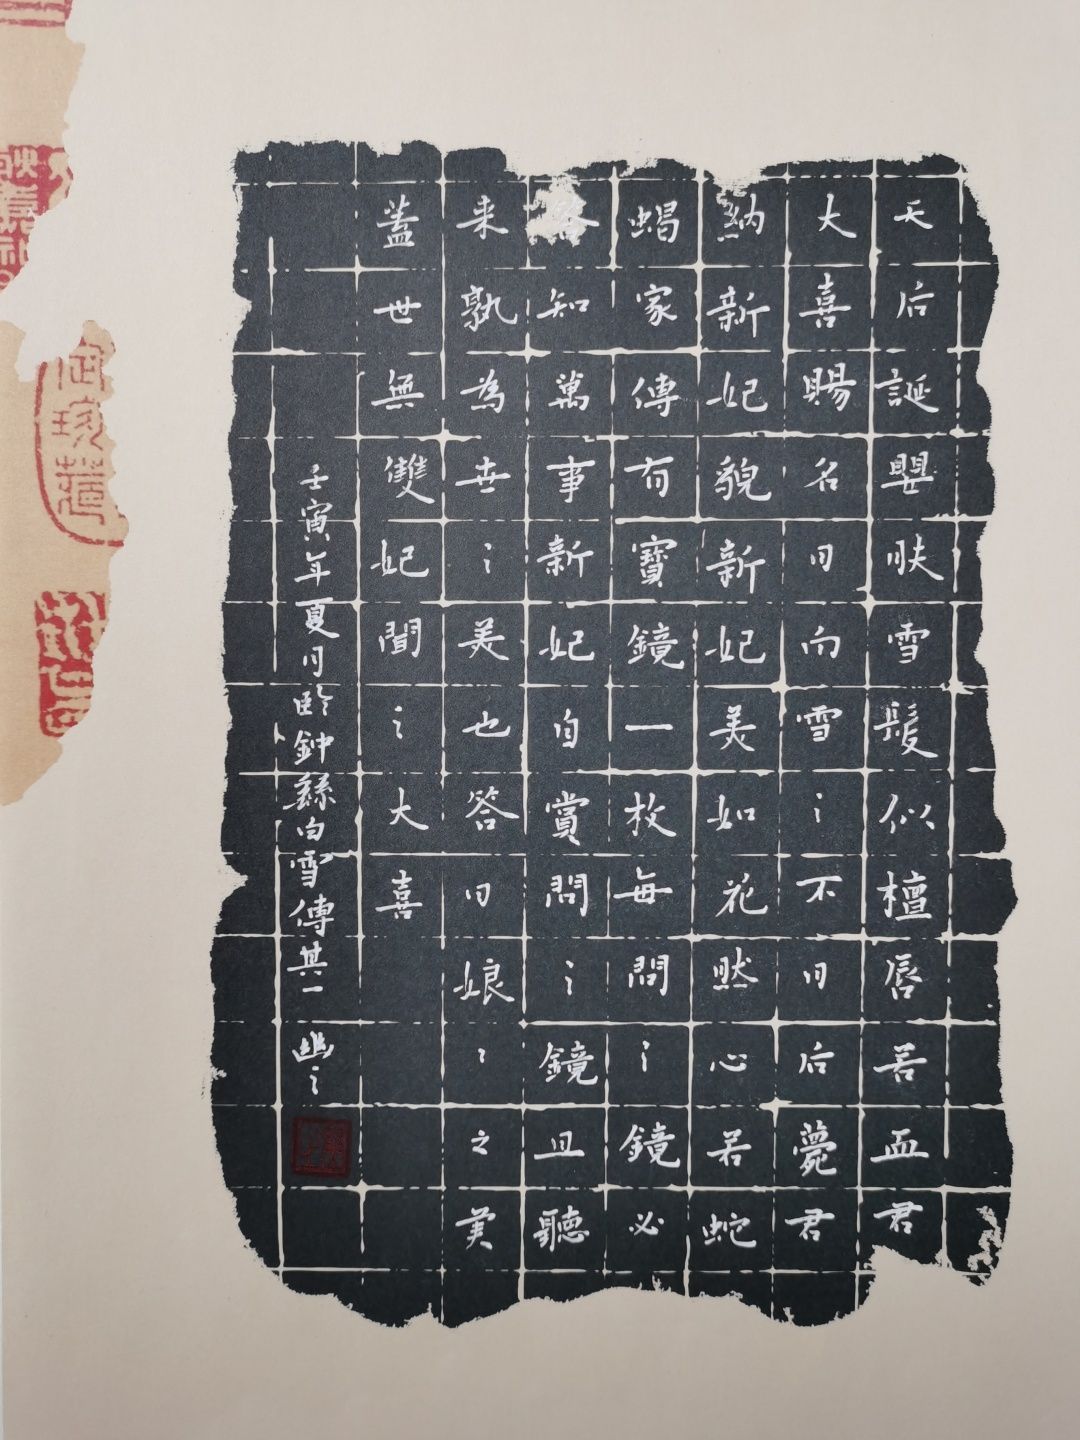 天后誕嬰肤雪髮似檀唇若血君
大喜賜名曰白雪之不日后薨君
納新妃貌新妃美如花然心若蛇
蝎家傳有寶鏡一枚每問之鏡必
答知萬事新妃自賞問之鏡且聽
来孰為世之美也答曰娘之之美
蓋世無雙妃聞之大喜
壬寅年夏月臨鍾繇白雪傳其一 幽之